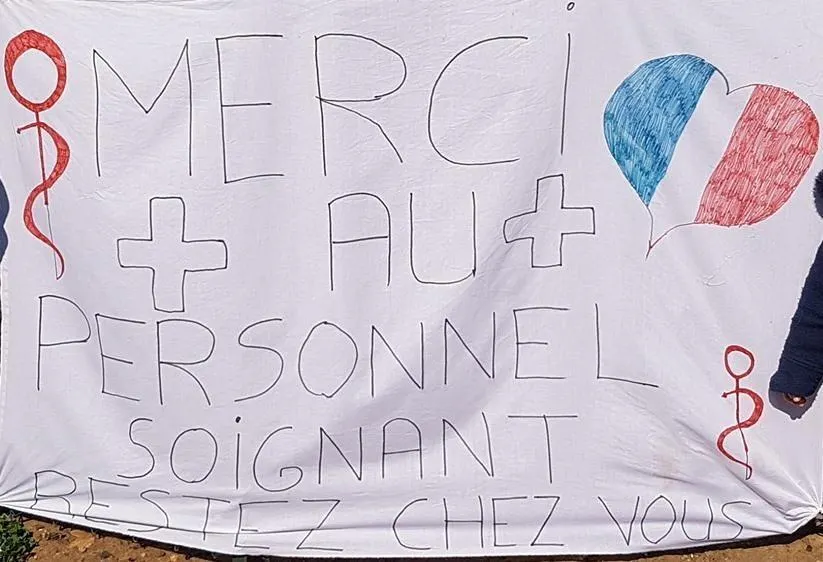 MERCi
AU
PERSONNEL
SOiGNANT
RESTEZ CHEZ VOUS